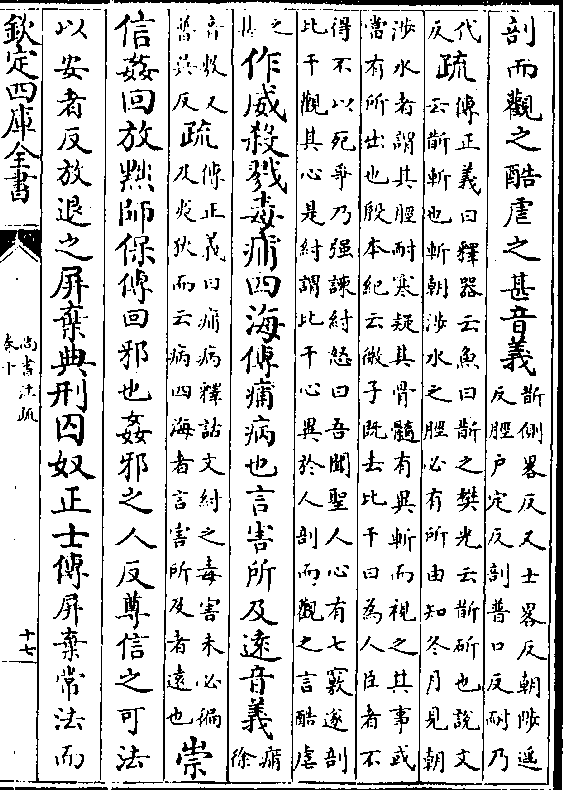 剖而觀之酷虐之甚音義
斮側畧反又士畧反朝陟遥
反脛户定反剖普口反耐乃
代
反
疏
傳正義曰釋器云魚曰斮之樊光云斮斫也說文
云斮斬也斬朝涉水之脛必有所由知冬月見朝
涉水者謂其脛耐寒疑其骨髓有異斬而視之其事或
當有所出也殷本紀云微子既去比干曰為人臣者不
得不以死爭乃强諫紂怒曰吾聞聖人心有七竅遂剖
比干觀其心是紂謂比干心異於人剖而觀之言酷虐
之
甚
作威殺戮毒痡四海傳痡病也言害所及遠音義
痡
徐
音敷又
普吳反
疏
傳正義曰痡病釋詁文紂之毒害未必徧
及夷狄而云病四海者言害所及者遠也
崇
信姦回放黜師保傳回邪也姦邪之人反尊信之可法
以安者反放退之屏棄典刑囚奴正士傳屏棄常法而
欽定四庫全書
尚書注疏
卷十
十七